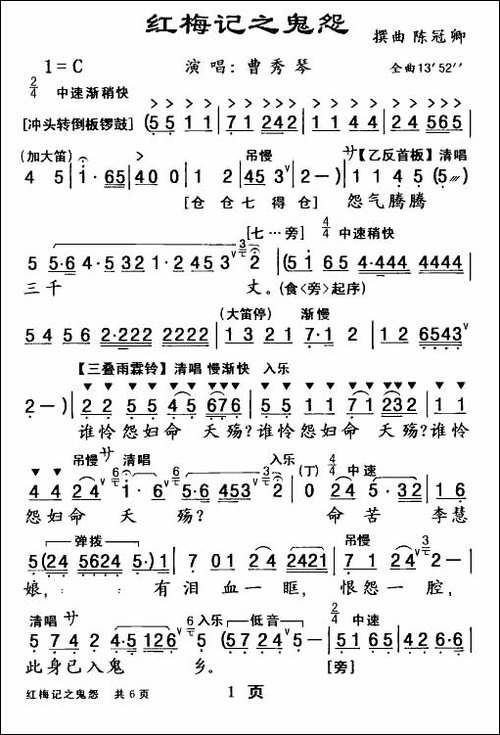 红梅记之鬼怨
撰曲 陈冠卿
1=C 演唱:曹秀琴 全曲13′52″
2/4 中速渐稍快
[冲头转倒板锣鼓] (5 5 1 1 | 7 1 242 | 1 1 4 4 | 2 4 565 |
(加大笛) 吊慢 サ【乙反首板】清唱
4 5 | i· 65 | 40 0 | 1 2 | 45 3 ∨ | 2 - ) | 1 1 4 5 (5 ///
[仓 仓 七 得 仓] 怨气腾腾
[七…旁] 4/4 中速稍快
5 5·6 4·5 32 1·2 45 3 ∨ 2 | (5i 65 4·444 4444
三千 丈。(食<旁>起序)
(大笛停) 渐慢
54 56 2·222 2222 | 1 3 2 1 7·1 2 | 12 6543 ∨
【三叠雨霖铃】清唱 慢渐快 入乐
2 - ) | 2 2 5 5 4 5 676 | 5 5 1 1 7 1 232 | 1 6
谁怜怨妇命夭殇?谁怜怨妇命夭殇?谁怜
吊慢 サ 清唱 入乐 (丁) 4/4 中速
4 4 2 4 ∨ i· 6 ∨ 5·6 453 ∨ 2 | 0 24 5·32 | 1 6
怨妇命夭殇? 命苦李慧
弹拨 吊慢
5 (24 5624 5·) 1 | 7 01 24 2421 | 7 1 24 ∨ 2
娘,::有泪血一眶,恨怨一腔,
清唱 サ 入乐 低音 2/4 中速
5 7 4 2 4·5 126 ∨ 5 (57 245 ∨ | 51 65 | 42 6·6 |
此身已入鬼 乡。 [旁]
红梅记之鬼怨 共6页 1 页